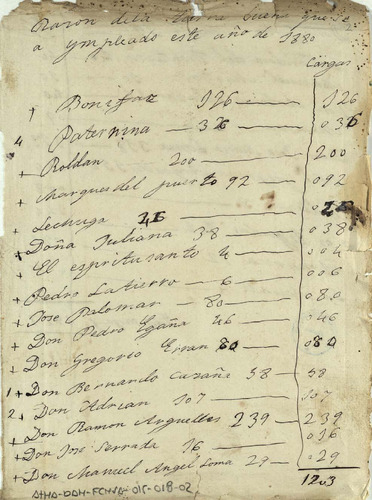 Razon de la
a ympleado este año de 1880
Cargas
+ Bonifaz 126 — 126
4 Paternina — 36 — 036
+ Roldan 200 — 200
+ Marques del puerto 92 — 092
+ Lechuga 26 — 026
+ Doña Juliana 38 — 038
+ El espiritusanto 4 — 004
+ Pedro Latierro — 6 — 006
+ Jose Palomar — 80 — 080
+ Don Pedro Egaña 46 — 046
+ Don Gregorio 80 — 080
1 + Don Bernardo 58 — 58
2 + Don Adrian 107 — 107
+ Don Ramon Arguelles 239 — 239
+ Don Jose Serrada 16 — 016
+ Don Manuel Angel Loma 29 — 29
1203
ATHA-DAH-FCHSA-015-018-02